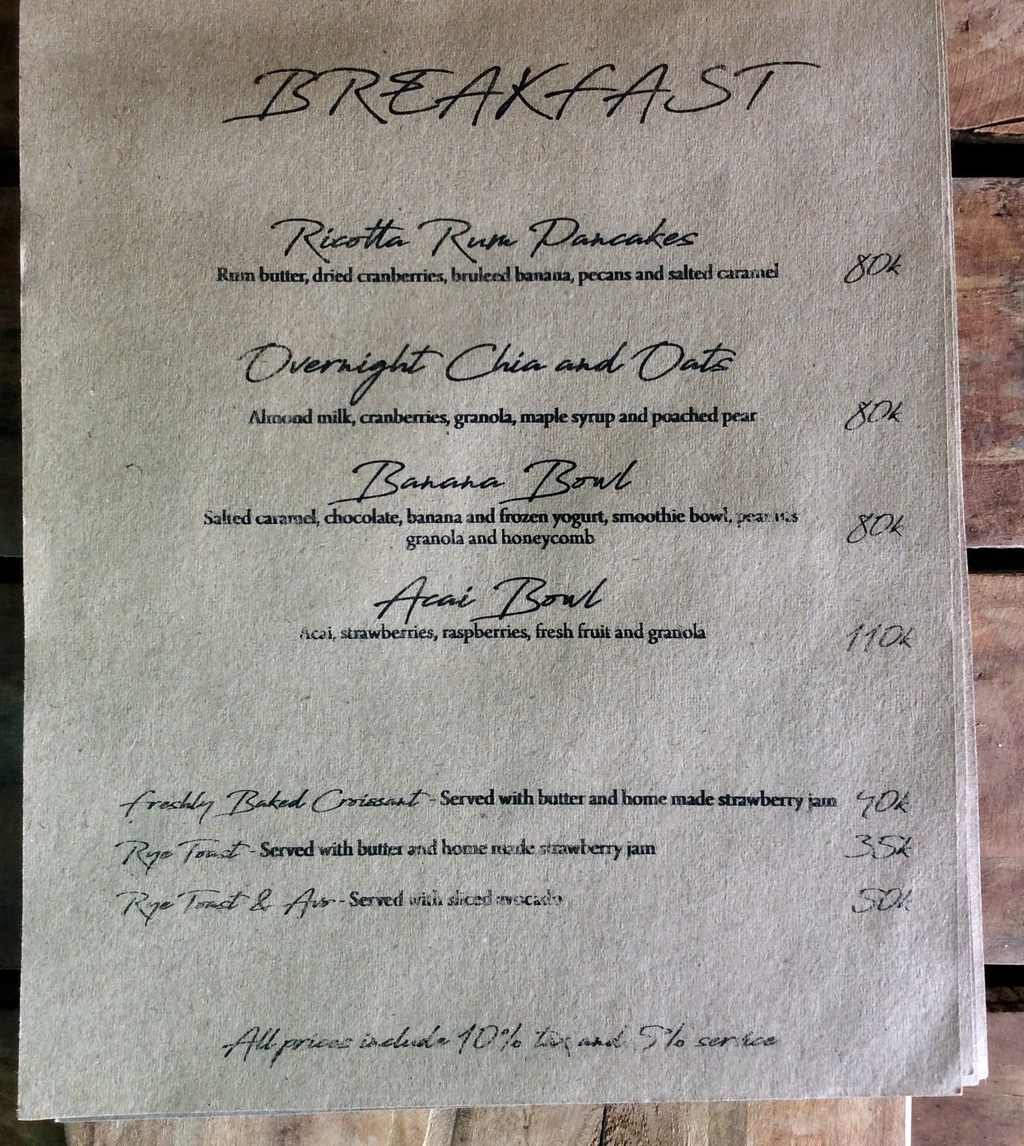 BREAKFAST
Ricotta Rum Pancakes
Rum butter, dried cranberries, bruleed banana, pecans and salted caramel 80k
Overnight Chia and Oats
Almond milk, cranberries, granola, maple syrup and poached pear 80k
Banana Bowl
Salted caramel, chocolate, banana and frozen yogurt, smoothie bowl, peanuts
granola and honeycomb 80k
Acai Bowl
Acai, strawberries, raspberries, fresh fruit and granola 110k
Freshly Baked Croissant - Served with butter and home made strawberry jam 40k
Rye Toast - Served with butter and home made strawberry jam 35k
Rye Toast & Avo - Served with sliced avocado 50k
All prices include 10% tax and 5% service